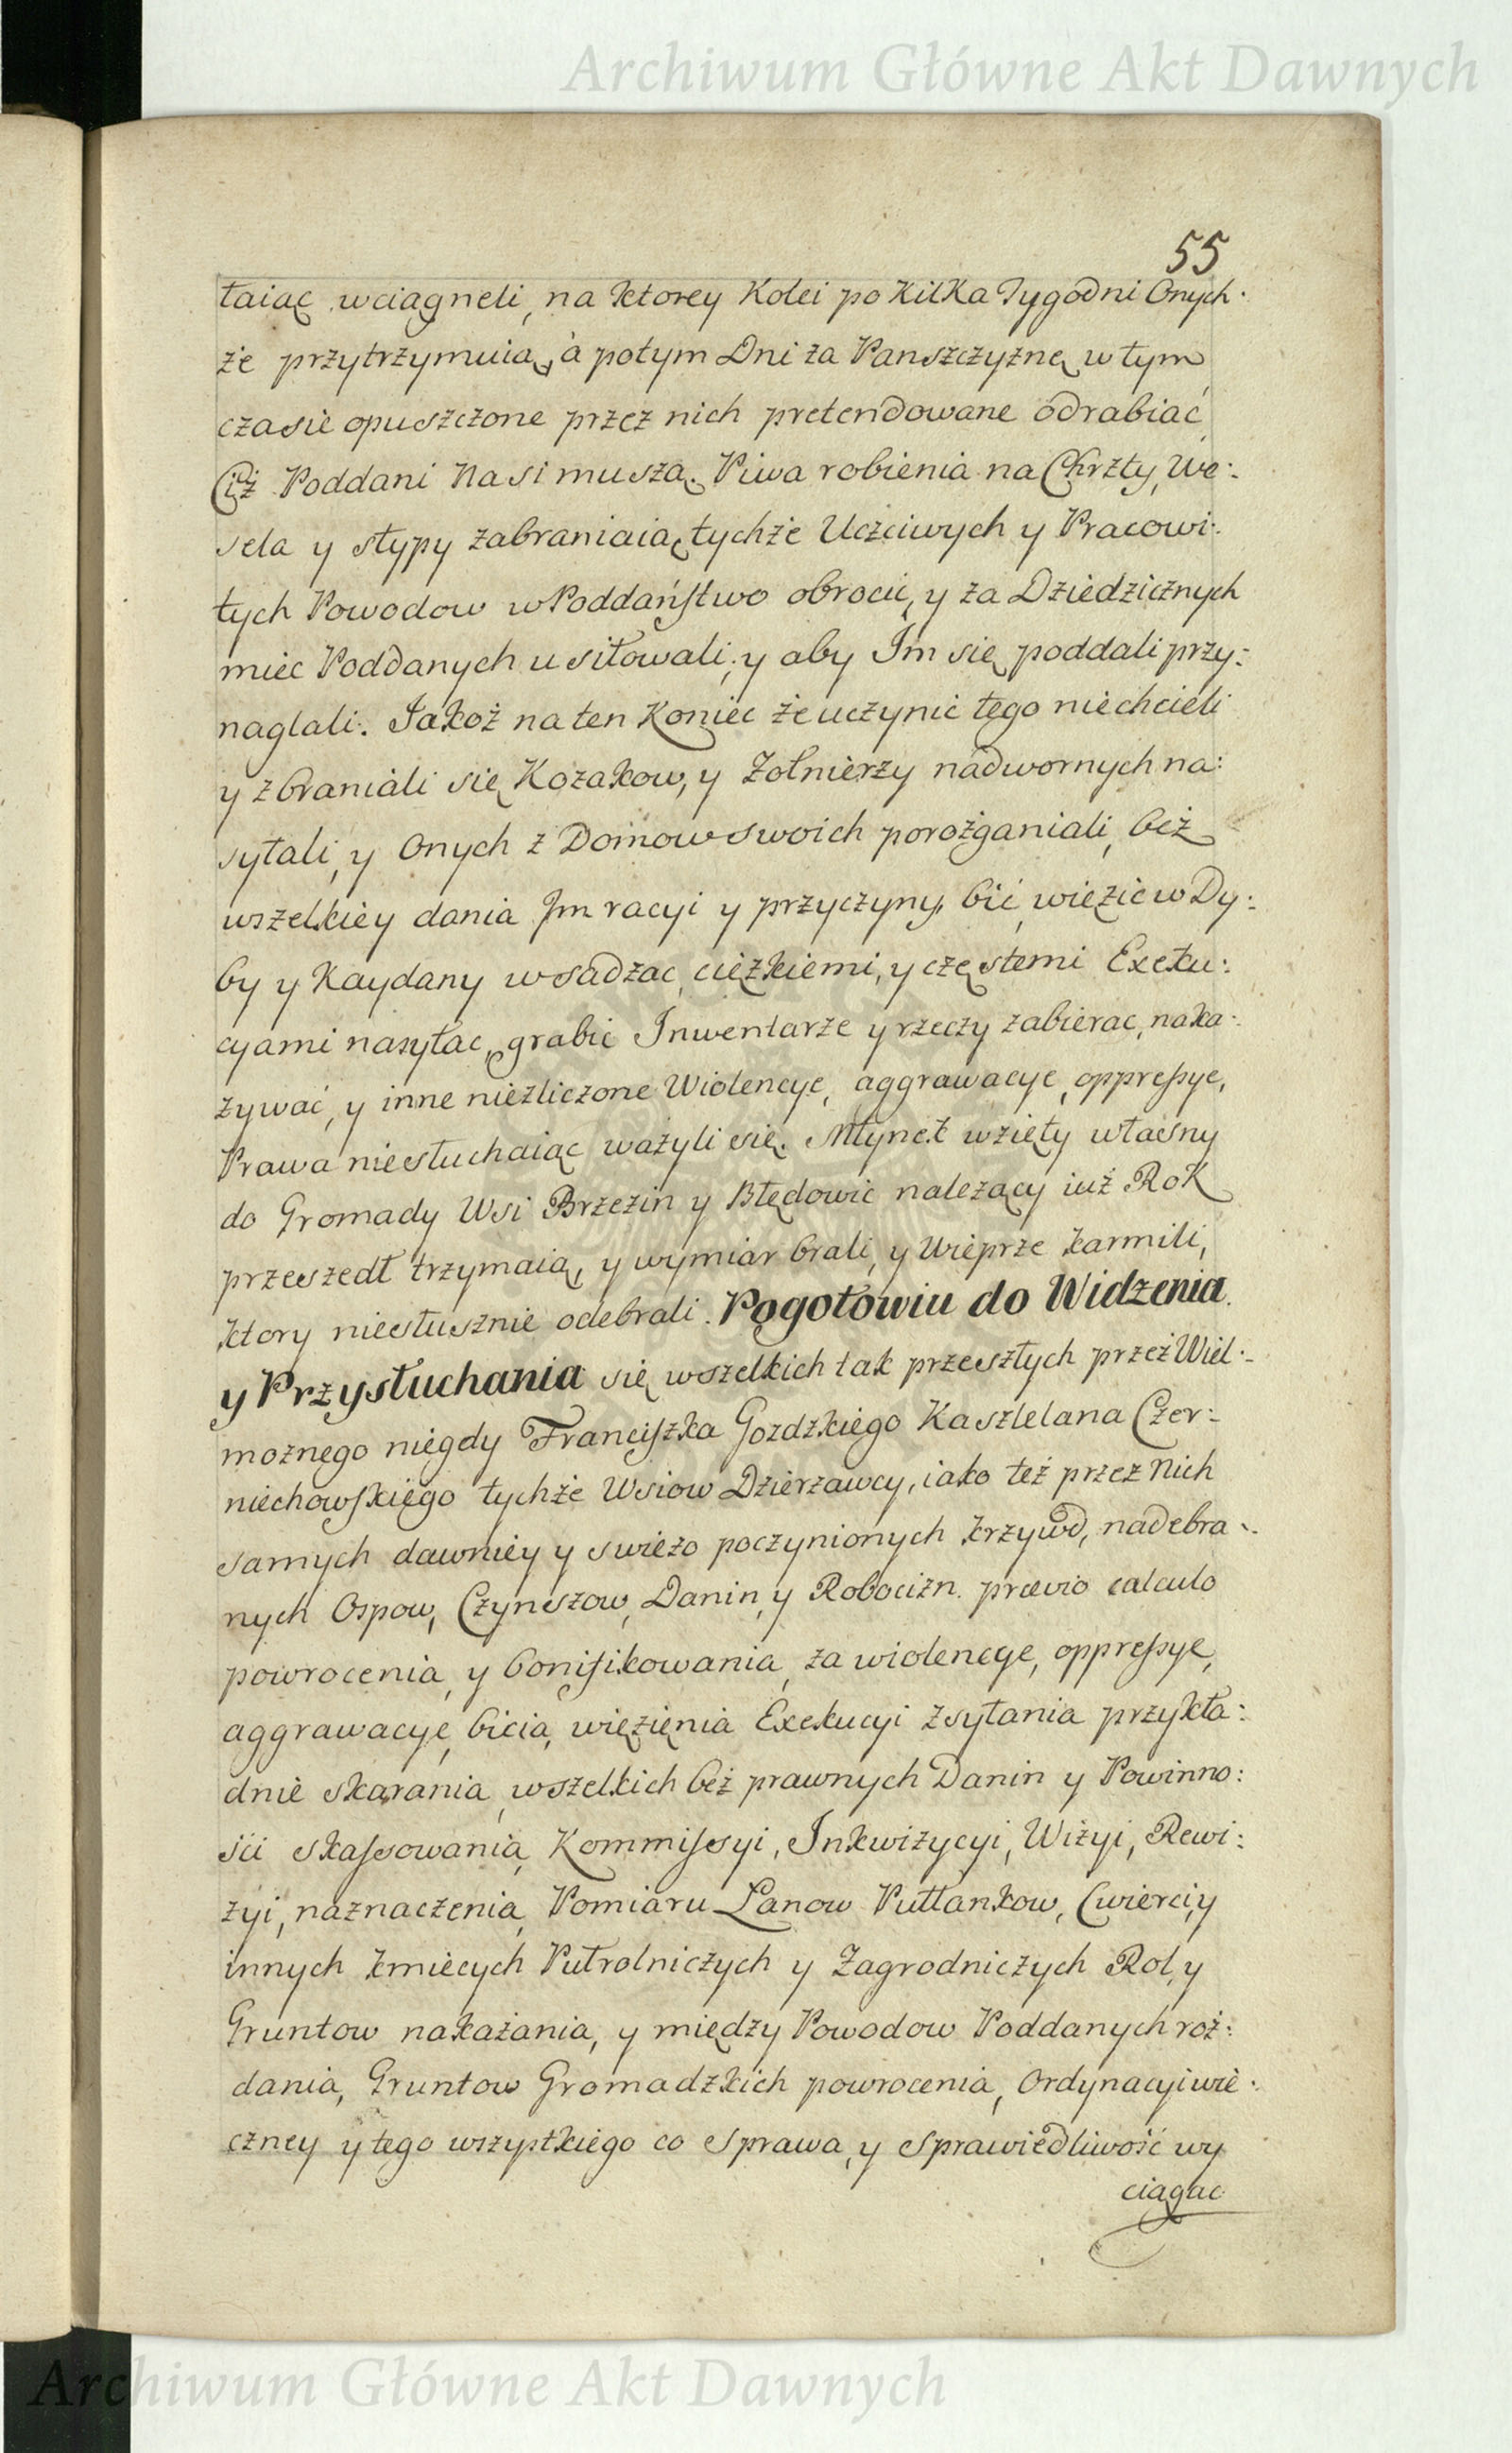 Archiwum Główne Akt Dawnych
55
taiąc wciągneli, na ktorey Kolei po kilka Tygodni Onych-
że przytrzymuią, a potym Dni za Panszczyznę w tym
czasie opuszczone przez nich pretendowane odrabiać
Ciż Poddani Nasi muszą. Piwa robienia na Chrzty, We:
sela y stypy zabraniaią tychże Uczciwych y Pracowi:
tych Powodow w Poddaństwo obrocić, y za Dziedzicznych
miec Poddanych usiłowali, y aby Im się poddali przy:
naglali. Jakoż na ten Koniec że uczynic tego niechcieli
y zbraniali się Kozakow, y Żołnierzy nadwornych na:
syłali, y Onych z Domow swoich porozganiali, bez
wszelkiey dania Im racyi y przyczyny, bić, więzić w Dy:
by y Kaydany wsadzac, cięzkiemi, y częstemi Exeku:
cyami nasyłac, grabic Inwentarze y rzeczy zabierac, naka:
zywać, y inne niezliczone Wiolencye, aggrawacye, oppressye,
Prawa niesłuchaiąc ważyli się. Młynek wzięty własny
do Gromady Wsi Brzezin y Błędowic należący iuż Rok
przeszedł trzymaią, y wymiar brali, y Wieprze karmili,
ktory niesłusznie odebrali. Pogotowiu do Widzenia
y Przysłuchania się wszelkich tak przeszłych przez Wiel:
możnego niegdy Franciszka Gozdzkiego Kasztelana Czer:
niechowskiego tychże Wsiow Dzierzawcy, iako też przez Nich
samych dawniey y swiezo poczynionych krzywd, nadebra:
nych Ospow, Czynszow, Danin, y Robocizn. prævio calculo
powrocenia, y bonifikowania, za wiolencye, oppressye,
aggrawacye, bicia, więzięnia Exekucyi zsyłania przykła:
dnie skarania, wszelkich bez prawnych Danin y Powinno:
ści skassowania, Kommissyi, Inkwizycyi, Wizyi, Rewi:
zyi, naznaczenia, Pomiaru Łanow Pułłankow, Cwierci, y
innych kmiecych Pułrolniczych y Zagrodniczych Rol, y
Gruntow nakażania, y między Powodow Poddanych roz:
dania, Gruntow Gromadzkich powrocenia, Ordynacyi wie:
czney y tego wszystkiego co sprawa, y sprawiedliwość wy
ciągac
Archiwum Główne Akt Dawnych